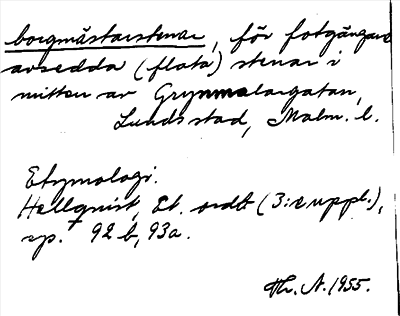 borgmästarstenar, för fotgängare
avsedda (flata) stenar i
mitten av Grynmalargatan,
Lunds stad, Malm. l.
Etymologi.
Hellquist, Et. ordb (3:e uppl.),
sp. 92 b, 93a.
Hr. N. 1955.